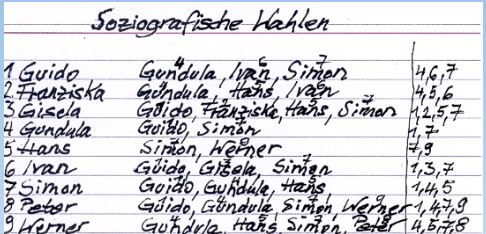 Soziografische Wahlen
1 Guido Gundula, Ivan, Simon 4,6,7
2 Franziska Gundula, Hans, Ivan 4,5,6
3 Gisela Guido, Franziska, Hans, Simon 1,2,5,7
4 Gundula Guido, Simon 1,7
5 Hans Simon, Werner 7,9
6 Ivan Guido, Gisela, Simon 1,3,7
7 Simon Guido, Gundula, Hans 1,4,5
8 Peter Guido, Gundula, Simon, Werner 1,4,7,9
9 Werner Gundula, Hans, Simon, Peter 4,5,7,8